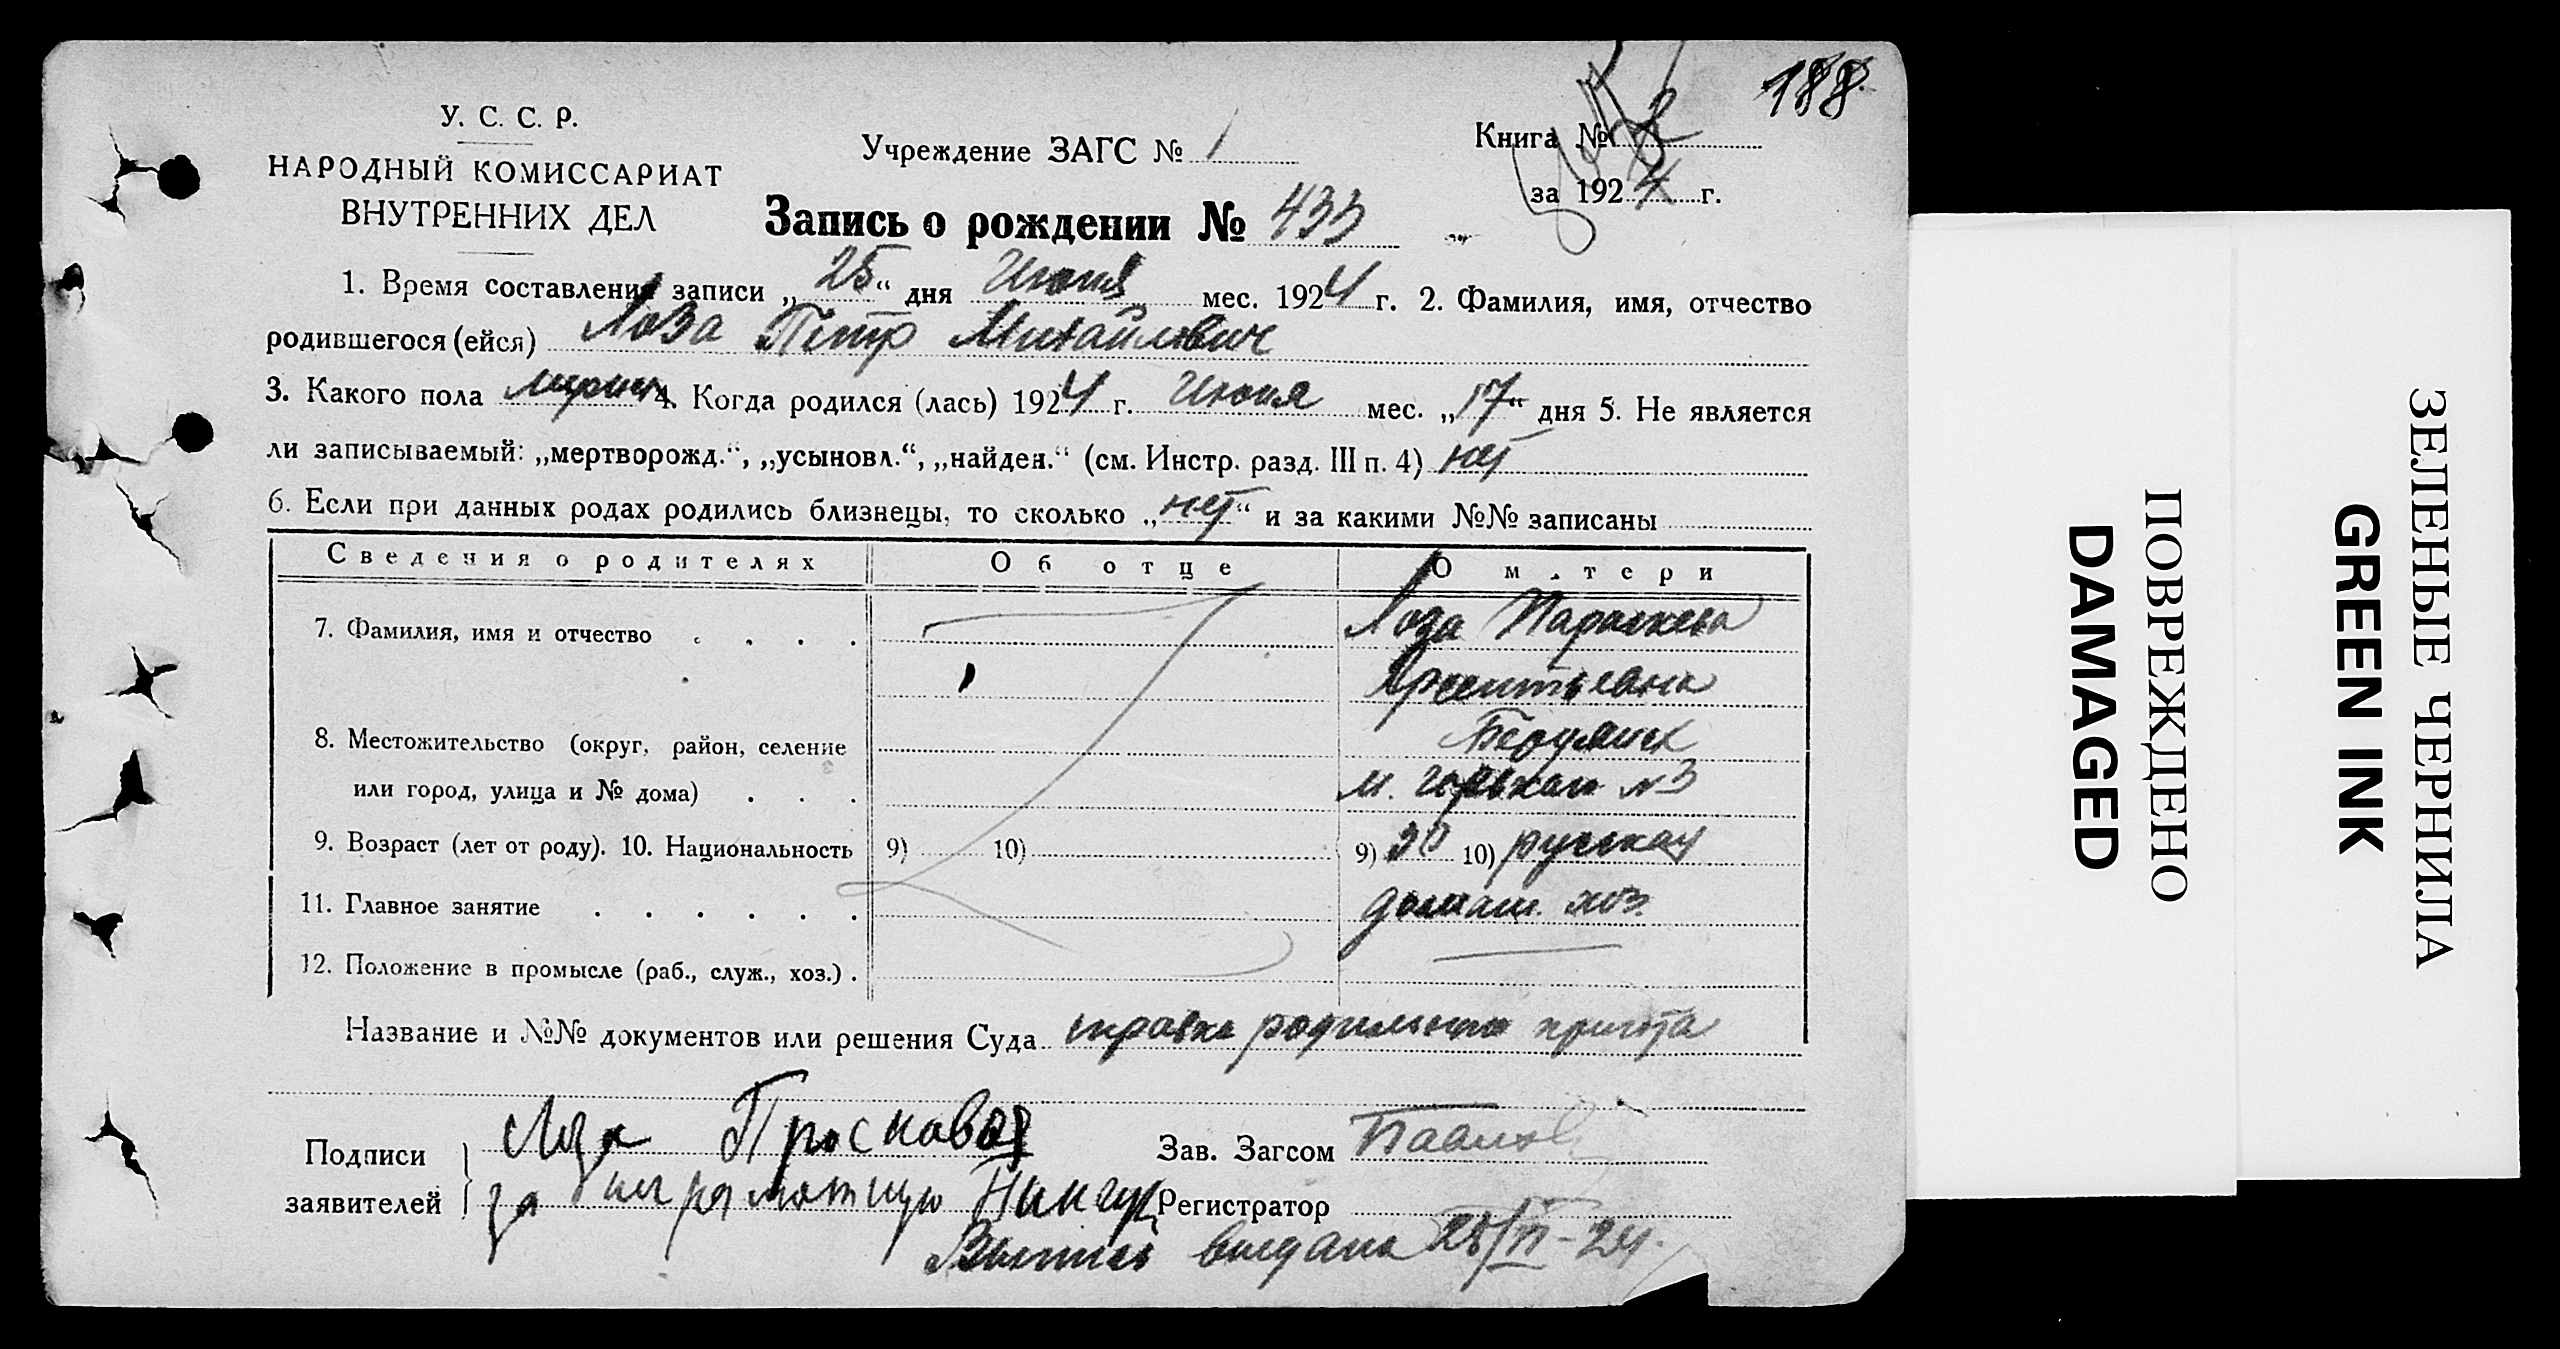 188
У. С. С. Р.
НАРОДНЫЙ КОМИССАРИАТ
ВНУТРЕННИХ ДЕЛ
Учреждение ЗАГС № 1
Книга № 2
за 1924 г.
Запись о рождении № 433
1. Время составления записи „25“ дня Июня мес. 1924 г. 2. Фамилия, имя, отчество
родившегося (ейся) Лоза Петр Михайлович
3. Какого пола 4. Когда родился (лась) 1924 г. Июня мес. „17“ дня 5. Не является
ли записываемый: „мертворожд.“, „усыновл.“, „найден.“ (см. Инстр. разд. III п. 4) нет
6. Если при данных родах родились близнецы, то сколько „нет“ и за какими №№ записаны
Сведения о родителях Об отце О м.тери
7. Фамилия, имя и отчество . . . . Лоза Параскева
Арсентьевна
8. Местожительство (округ, район, селение Бердянск
или город, улица и № дома) . . . М. Горькаго №3
9. Возраст (лет от роду). 10. Национальность 9) 10) 9) 30 10) русская
11. Главное занятие . . . . . . домаш. хоз.
12. Положение в промысле (раб., служ., хоз.) .
Название и №№ документов или решения Суда справка родильного приюта
Подписи заявителей
Лоза Просковая
за неграмотную
Зав. Загсом Павлов
Регистратор
Выпись выдана 25/VI-24.
ПОВРЕЖДЕНО
DAMAGED
ЗЕЛЕНЫЕ ЧЕРНИЛА
GREEN INK